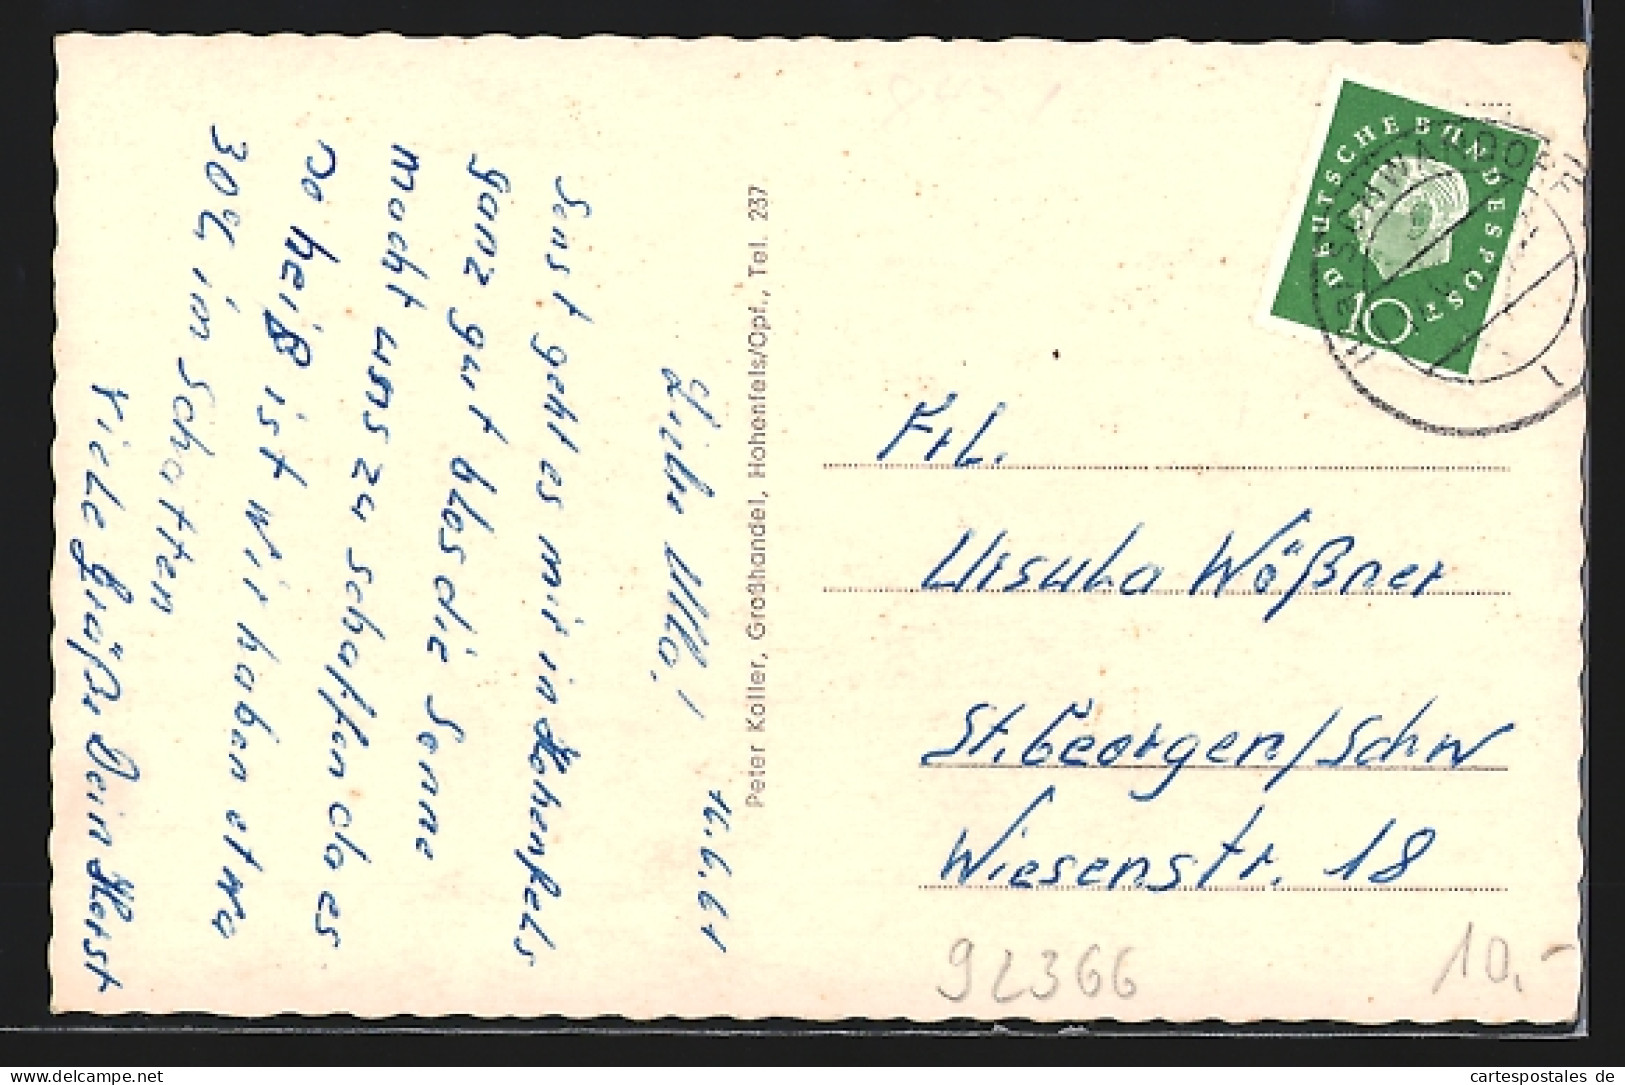 16.6.61
Liebe Ulla!
Sonst geht es mir in Hohenfels
ganz gut blos die Sonne
macht uns zu schaffen da es
so heiß ist wir haben etwa
30°C im Schatten
Viele Grüße Dein Horst
Peter Koller, Großhandel, Hohenfels/Opf., Tel. 237
DEUTSCHE BUNDESPOST
10
SCHWANDORF
1
Frl.
Ursula Wößner
St. Georgen/Schw
Wiesenstr. 18
92366
10,-
© www.cartespostales.de
cartespostales de